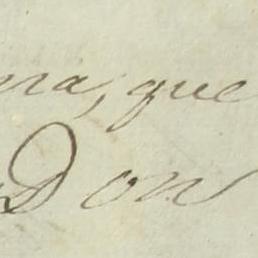 na, que
Dons